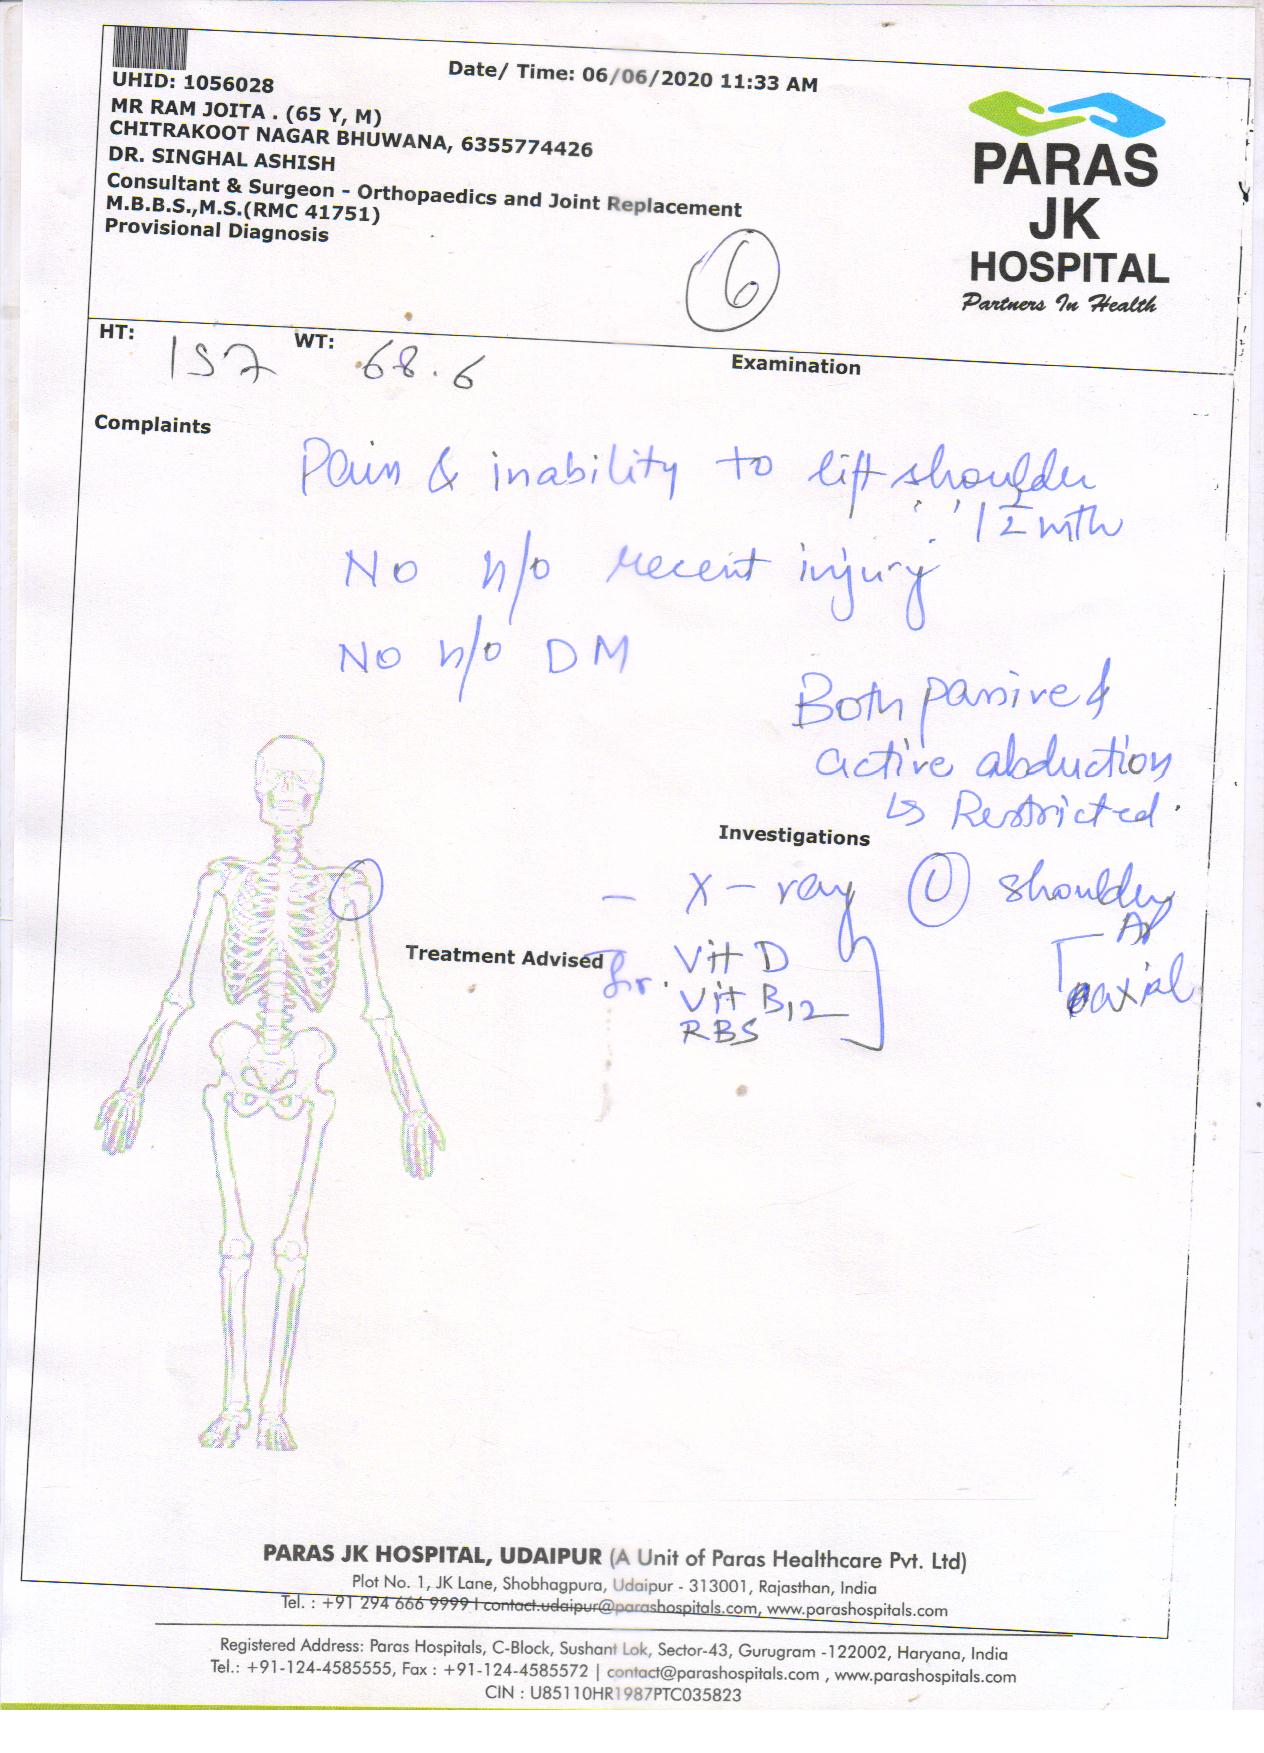 UHID: 1056028
Date/ Time: 06/06/2020 11:33 AM
MR RAM JOITA . (65 Y, M)
CHITRAKOOT NAGAR BHUWANA, 6355774426
DR. SINGHAL ASHISH
Consultant & Surgeon - Orthopaedics and Joint Replacement
M.B.B.S.,M.S.(RMC 41751)
Provisional Diagnosis
6
PARAS
JK
HOSPITAL
Partners In Health
HT: 157 WT: 68.6
Examination
Complaints
Pain & inability to lift shoulder
1 1/2 mth
No h/o recent injury
No h/o DM
Both passive &
active abduction
↳ Restricted.
Investigations
- X-ray L shoulder
- AP
axial
Treatment Advised
Sr. Vit D
Vit B12
RBS
PARAS JK HOSPITAL, UDAIPUR (A Unit of Paras Healthcare Pvt. Ltd)
Plot No. 1, JK Lane, Shobhagpura, Udaipur - 313001, Rajasthan, India
Tel. : +91 294 666 9999 | contact.udaipur@parashospitals.com, www.parashospitals.com
Registered Address: Paras Hospitals, C-Block, Sushant Lok, Sector-43, Gurugram -122002, Haryana, India
Tel.: +91-124-4585555, Fax : +91-124-4585572 | contact@parashospitals.com , www.parashospitals.com
CIN : U85110HR1987PTC035823